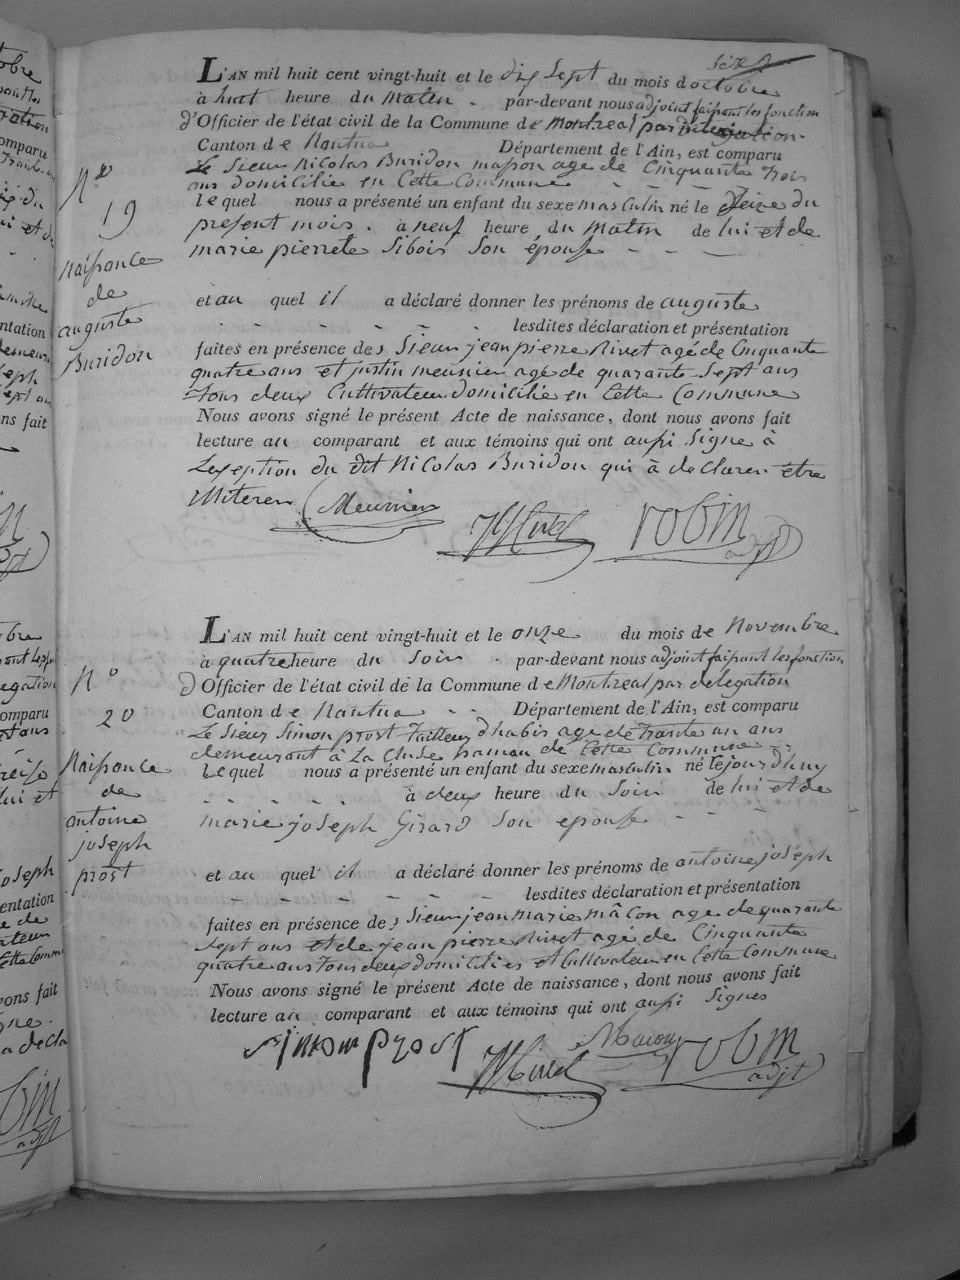 six
L'AN mil huit cent vingt-huit et le dix Sept du mois doctobre
à huit heure du Matin . par-devant nous adjoint faisant les fonction
d'Officier de l'état civil de la Commune de Montreal par
Canton de Nantua Département de l'Ain, est comparu
Le Sieur Nicolas Buridon masson age de Cinquante trois
ans domicilié en Cette Commune - - - -
lequel nous a présenté un enfant du sexe masculin né le Seize du
present mois . à neuf heure du Matin de lui et de
marie pierrete Sibois Son épouse - - -
N°
19
Naissance
de
auguste
Buridon
et au quel il a déclaré donner les prénoms de auguste
- - - - - - lesdites déclaration et présentation
faites en présence des Sieur jean pierre Rivet agé de Cinquante
quatre ans et justin meunier agé de quarante Sept ans
tous deux Cultivateur domicilié en Cette Commune
Nous avons signé le présent Acte de naissance, dont nous avons fait
lecture au comparant et aux témoins qui ont aussi Signe à
Lexeption du dit Nicolas Buridon qui à declaren être
illiteren Meunier JPRivet robin
adjt
L'AN mil huit cent vingt-huit et le onze du mois de Novembre
à quatre heure du Soir . par-devant nous adjoint faisant les fonction
d Officier de l'état civil de la Commune de Montreal par delegation
Canton de Nantua - - Département de l'Ain, est comparu
Le Sieur Simon prost tailleur dhabis age de trante un ans
demeurant à La Cluse hameau de Cette Commune - -
Lequel nous a présenté un enfant du sexe masculin né lejourdhuy
- - - - - à deux heure du Soir de lui et de
marie joseph Girard Son epouse - - - -
N°
20
Naissance
de
antoine
joseph
prost
et au quel il a déclaré donner les prénoms de antoine joseph
- - - - - - lesdites déclaration et présentation
faites en présence des Sieur jean marie mâcon age de quarante
Sept ans et de jean pierre Rivet agé de Cinquante
quatre ans tous deux domicilies et Cultivateur en Cette Commune
Nous avons signé le présent Acte de naissance, dont nous avons fait
lecture au comparant et aux témoins qui ont aussi Signes
simon prost JPRivet Macon robin
adjt